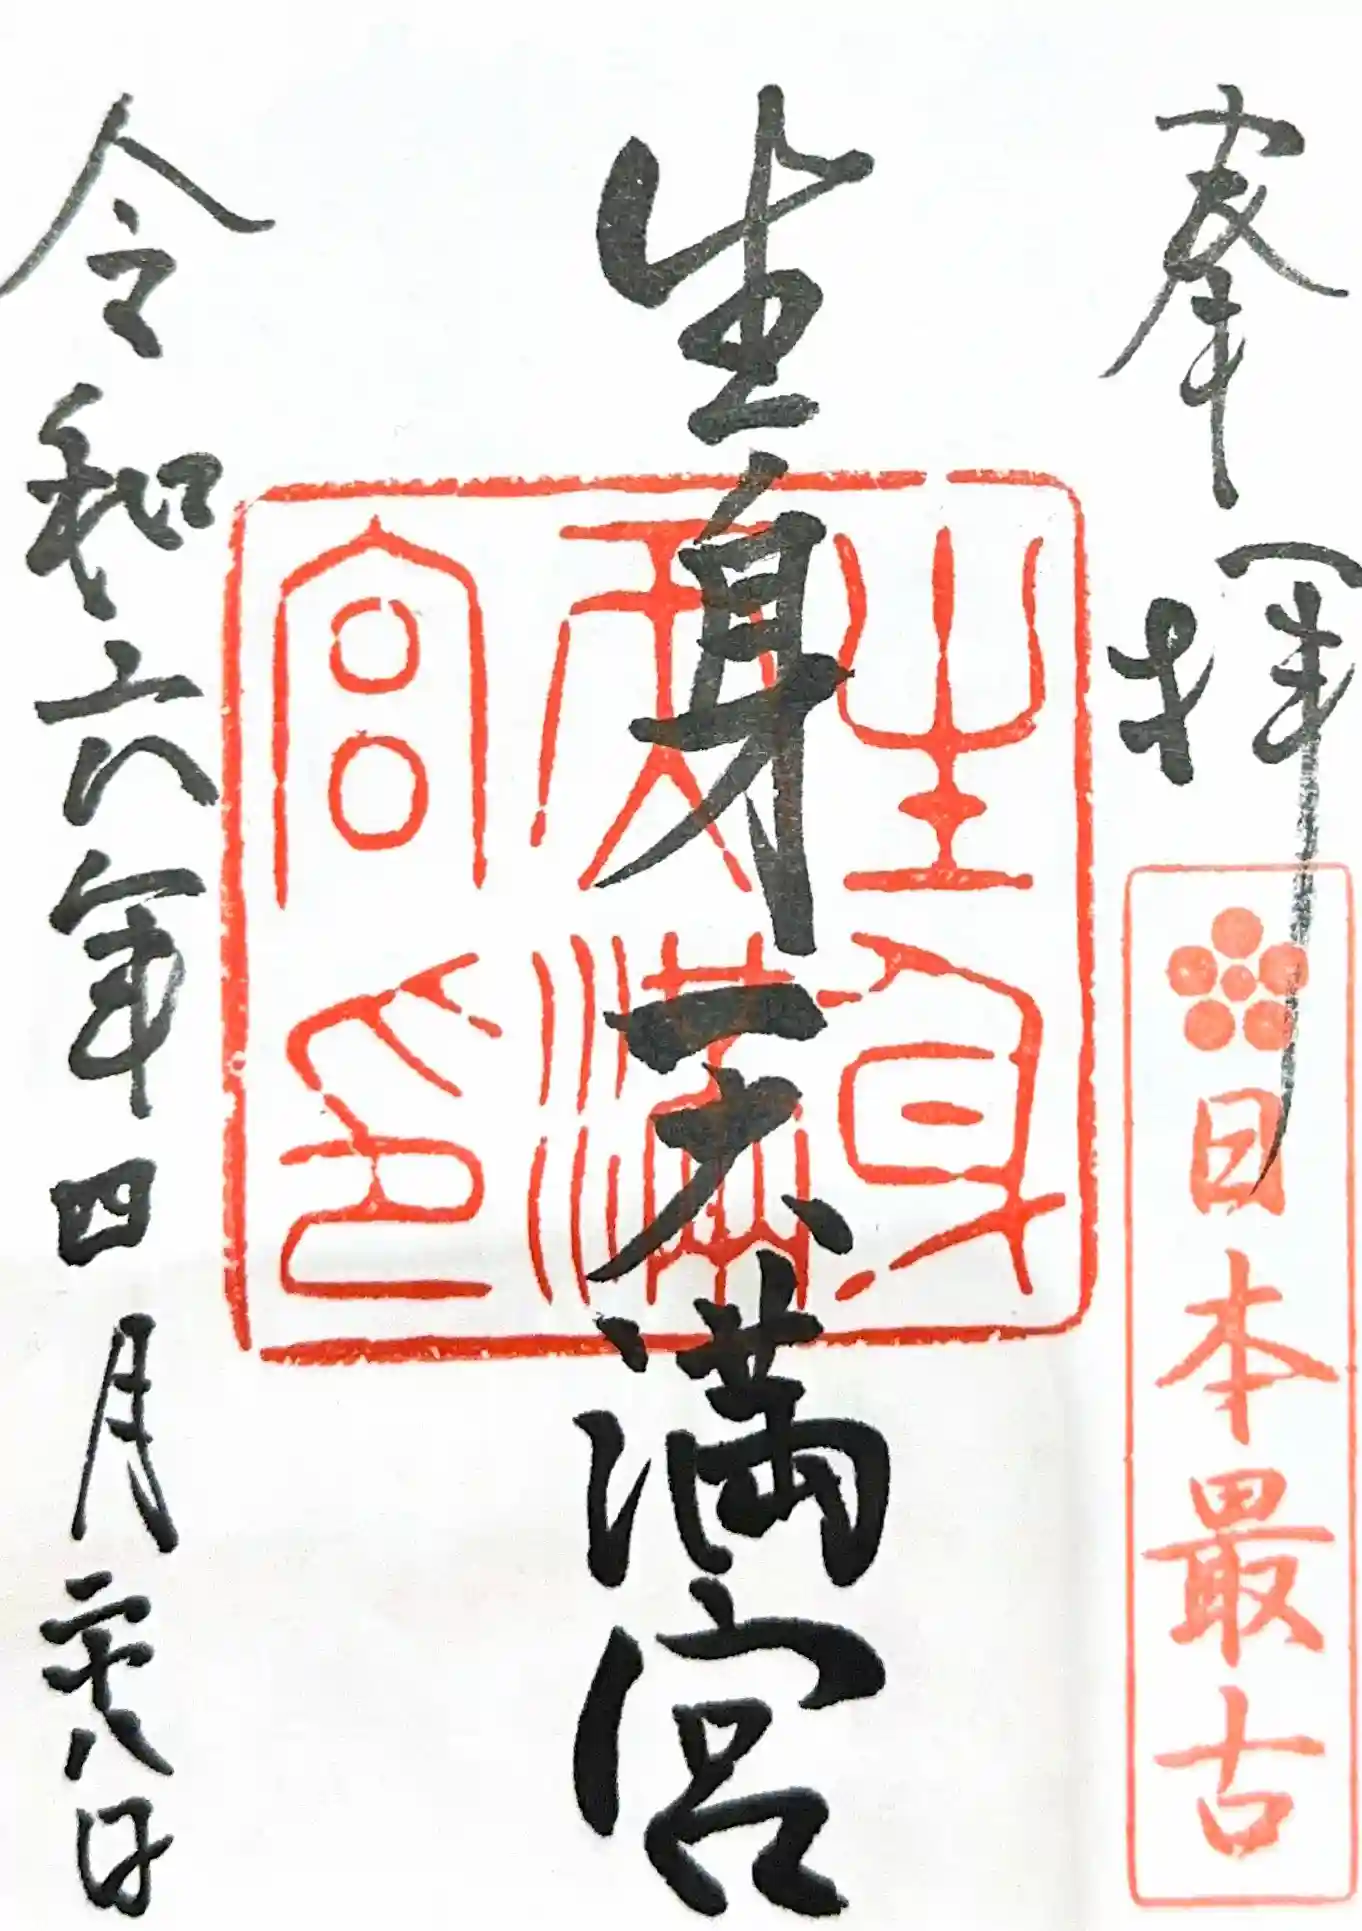 奉拝
日本最古
生身天満宮
生身天満宮印
令和六年四月二十八日